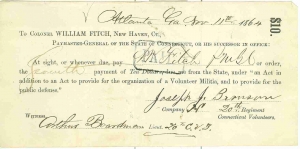 Atlanta Ga Nov 11th 1864
$10.
To COLONEL WILLIAM FITCH, NEW HAVEN, CT.,
PAYMASTER-GENERAL OF THE STATE OF CONNECTICUT, OR HIS SUCCESSOR IN OFFICE:
At sight, or whenever due, pay Fitch or order, the
payment of Ten Dollars, from the State, under "an Act in
addition to an Act to provide for the organization of a Volunteer Militia, and to provide for the
public defense."
Joseph J. Bronson
Company K 20th Regiment
Connecticut Volunteers.
Witness,
Arthur Boardman Lieut 20th C.V.I.